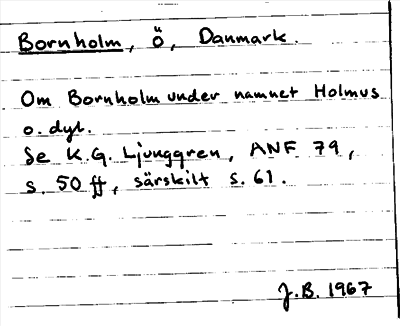 Bornholm, ö, Danmark.
Om Bornholm under namnet Holmus
o. dyl.
Se K.G. Ljunggren, ANF 79,
s. 50 ff, särskilt s. 61.
J.B. 1967